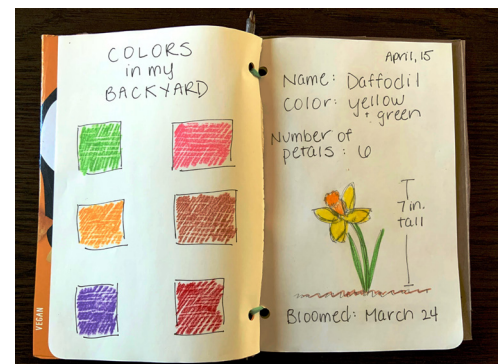 COLORS
in my
BACKYARD
VEGAN
April, 15
Name: Daffodil
Color: yellow
+ green
Number of
petals: 6
7 in.
tall
Bloomed: March 24